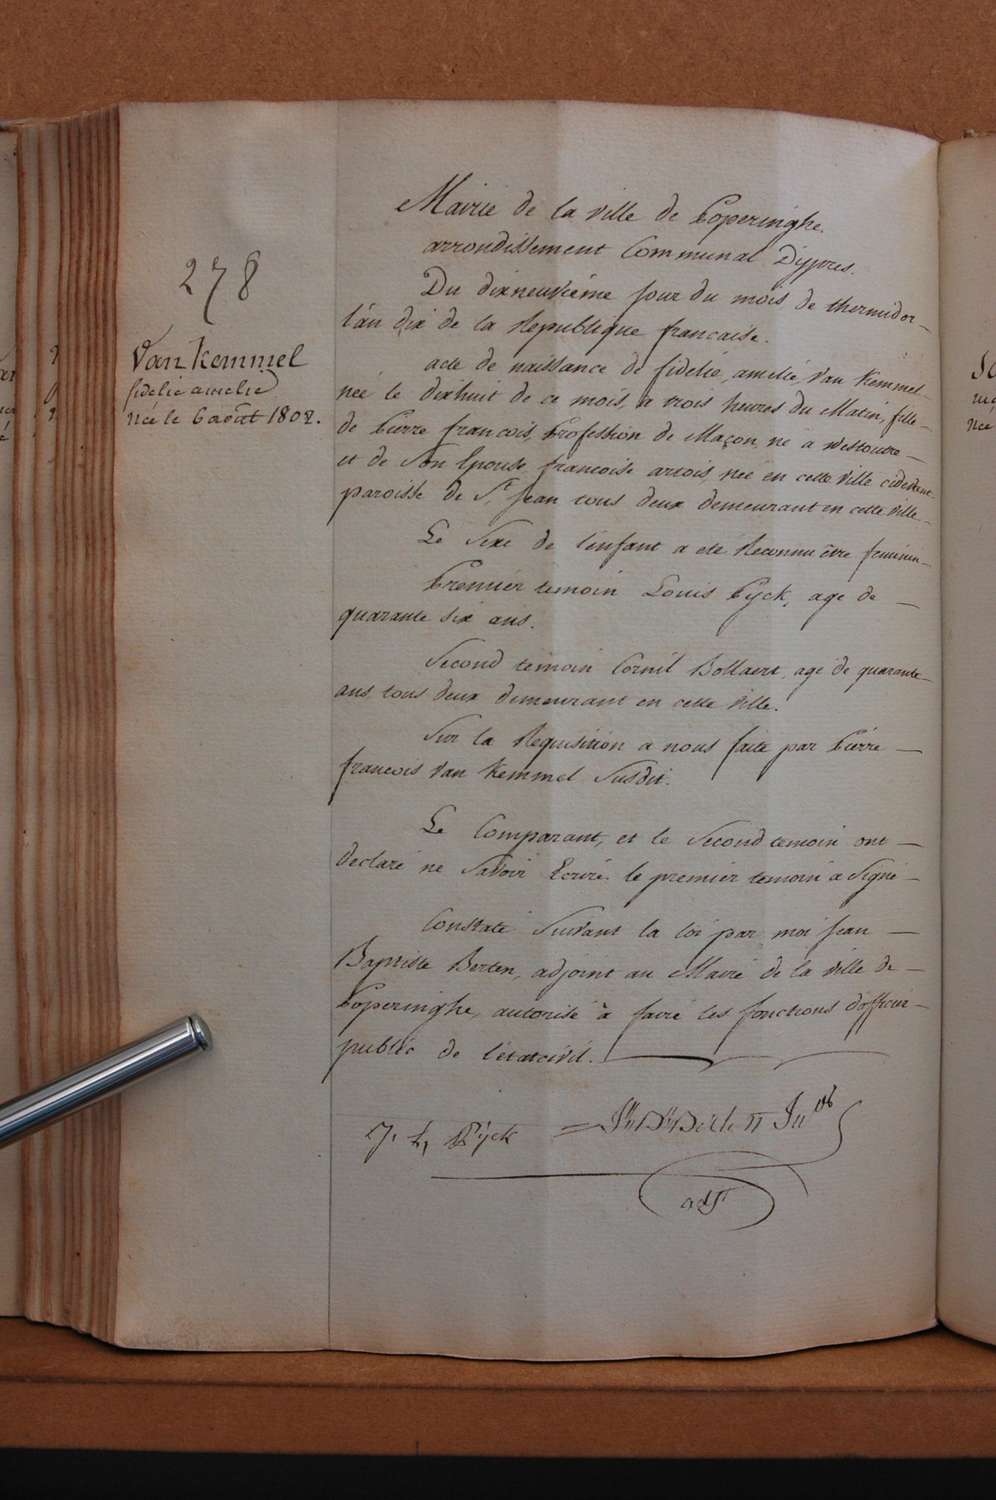 278
Van Kemmel
fidelie amelie
née le 6 août 1802.
Mairie de la ville de Poperinghe.
arrondissement Communal Dijpres.
Du dixneuvième jour du mois de thermidor
l'an dix de la Republique francaise.
acte de naissance de fidelie, amelie, Van Kemmel
née le dixhuit de ce mois, a trois heures du Matin, fille
de Pierre francois, Profession de Maçon, né a westoutre
et de Son Epouse francoise artois, née en cette ville cidevant
paroisse de St. Jean tous deux demeurant en cette ville
Le Sexe de l'enfant a eté Reconnu être feminin
Premier temoin Louis Pijck, agé de
quarante six ans.
Second temoin Cornil Bollaert, agé de quarante
ans, tous deux demeurant en cette Ville.
Sur la Requisition a nous faite par Pierre
francois Van Kemmel Susdit.
Le Comparant, et le Second temoin ont
declaré ne Savoir Ecrire. le premier temoin a Signé
Constaté Suivant la loi par moi Jean
Baptiste Berten, adjoint au Maire de la Ville de
Poperinghe, autorisé à faire les fonctions d'officier
public de l'état civil.
J. L, Pijck
adjt